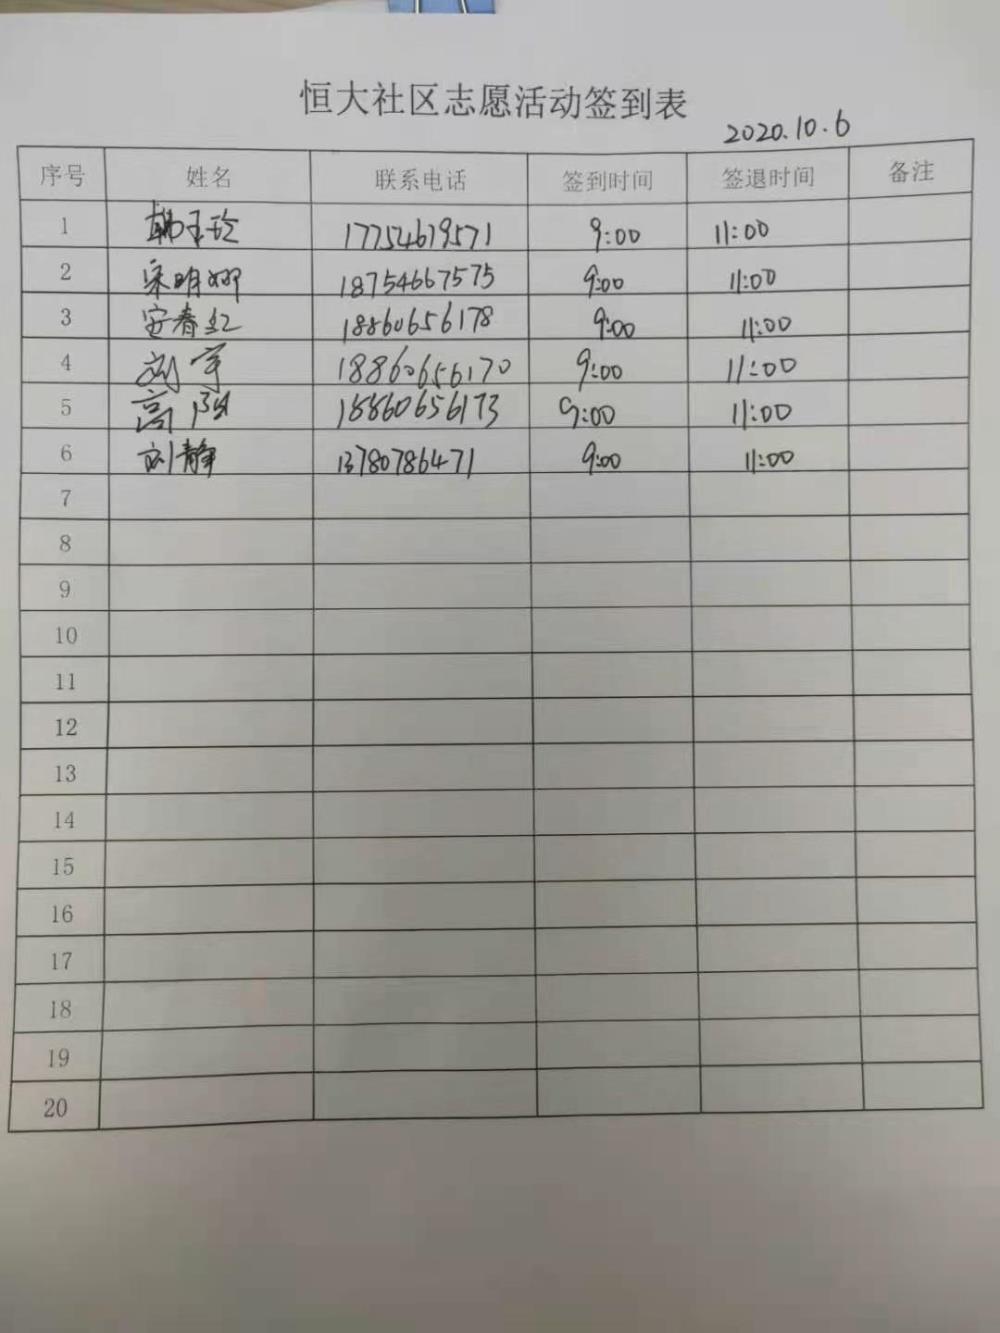 恒大社区志愿活动签到表
2020.10.6
序号 姓名 联系电话 签到时间 签退时间 备注
1 韩玉玲 17754619571 9:00 11:00
2 宋明娜 18754667575 9:00 11:00
3 安春红 18860656178 9:00 11:00
4 刘宇 18860656170 9:00 11:00
5 高阳 18860656173 9:00 11:00
6 刘静 13780786471 9:00 11:00
7
8
9
10
11
12
13
14
15
16
17
18
19
20